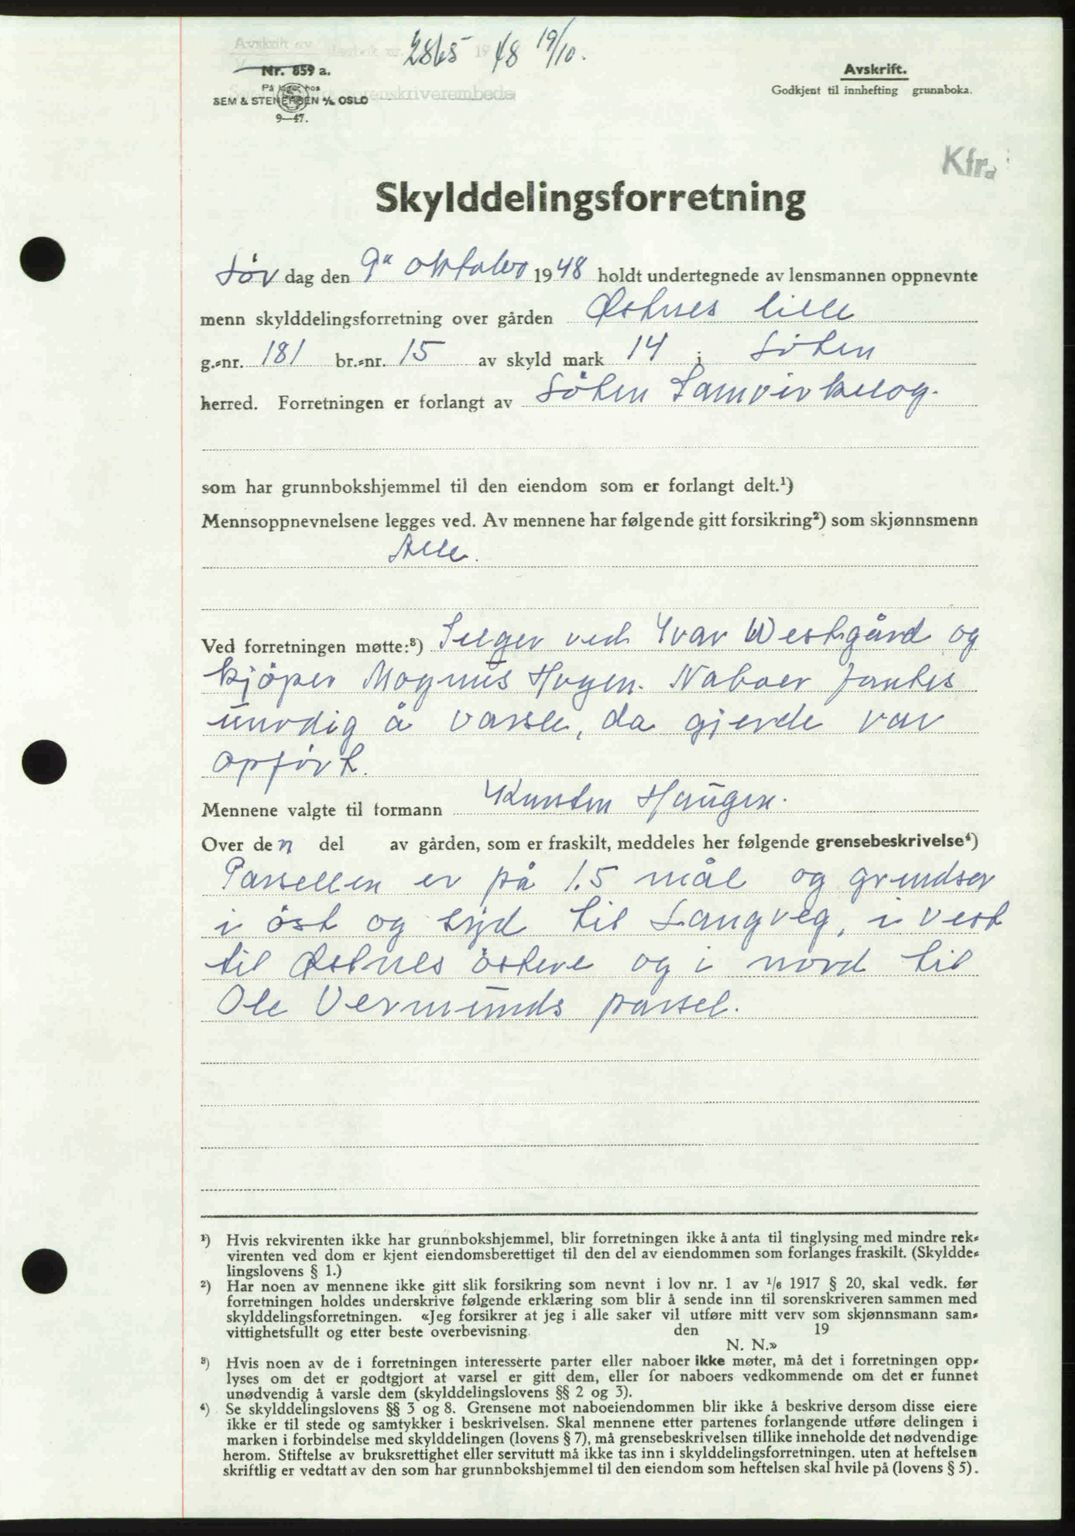 2865 1948 19/10.
Nr. 859 a.
På lager hos
SEM & STENERSEN A/S OSLO
9—47.
Avskrift.
Godkjent til innhefting grunnboka.
Kfr.
Skylddelingsforretning
Lør dag den 9de oktober 1948 holdt undertegnede av lensmannen oppnevnte
menn skylddelingsforretning over gården Østnes lille
g.-nr. 181 br.-nr. 15 av skyld mark 14 i Løten
herred. Forretningen er forlangt av Löten Samvirkelag.
som har grunnbokshjemmel til den eiendom som er forlangt delt.¹)
Mennsoppnevnelsene legges ved. Av mennene har følgende gitt forsikring²) som skjønnsmenn
Alle.
Ved forretningen møtte:³) Selger ved Ivar Westgård og
kjöper Magnus Hagen. Naboer fantes
unødig å varsle, da gjerde var
opført.
Mennene valgte til formann Haugen.
Over den del av gården, som er fraskilt, meddeles her følgende grensebeskrivelse⁴)
Parsellen er på 1.5 mål og grendser
i öst og syd til Langveg, i vest
til Østnes östere og i nord til
Ole Vermunds parsel.
¹) Hvis rekvirenten ikke har grunnbokshjemmel, blir forretningen ikke å anta til tinglysing med mindre rek-
virenten ved dom er kjent eiendomsberettiget til den del av eiendommen som forlanges fraskilt. (Skyldde-
lingslovens § 1.)
²) Har noen av mennene ikke gitt slik forsikring som nevnt i lov nr. 1 av 1/6 1917 § 20, skal vedk. før
forretningen holdes underskrive følgende erklæring som blir å sende inn til sorenskriveren sammen med
skylddelingsforretningen. «Jeg forsikrer at jeg i alle saker vil utføre mitt verv som skjønnsmann sam-
vittighetsfullt og etter beste overbevisning. den 19
N. N.»
³) Hvis noen av de i forretningen interesserte parter eller naboer ikke møter, må det i forretningen opp-
lyses om det er godtgjort at varsel er gitt dem, eller for naboers vedkommende om det er funnet
unødvendig å varsle dem (skylddelingslovens §§ 2 og 3).
⁴) Se skylddelingslovens §§ 3 og 8. Grensene mot naboeiendommen blir ikke å beskrive dersom disse eiere
ikke er til stede og samtykker i beskrivelsen. Skal mennene etter partenes forlangende utføre delingen i
marken i forbindelse med skylddelingen (lovens § 7), må grensebeskrivelsen tillike inneholde det nødvendige
herom. Stiftelse av bruksrettighet eller servitutt må ikke tas inn i skylddelingsforretningen, uten at heftelsen
skriftlig er vedtatt av den som har grunnbokshjemmel til den eiendom som heftelsen skal hvile på (lovens § 5).